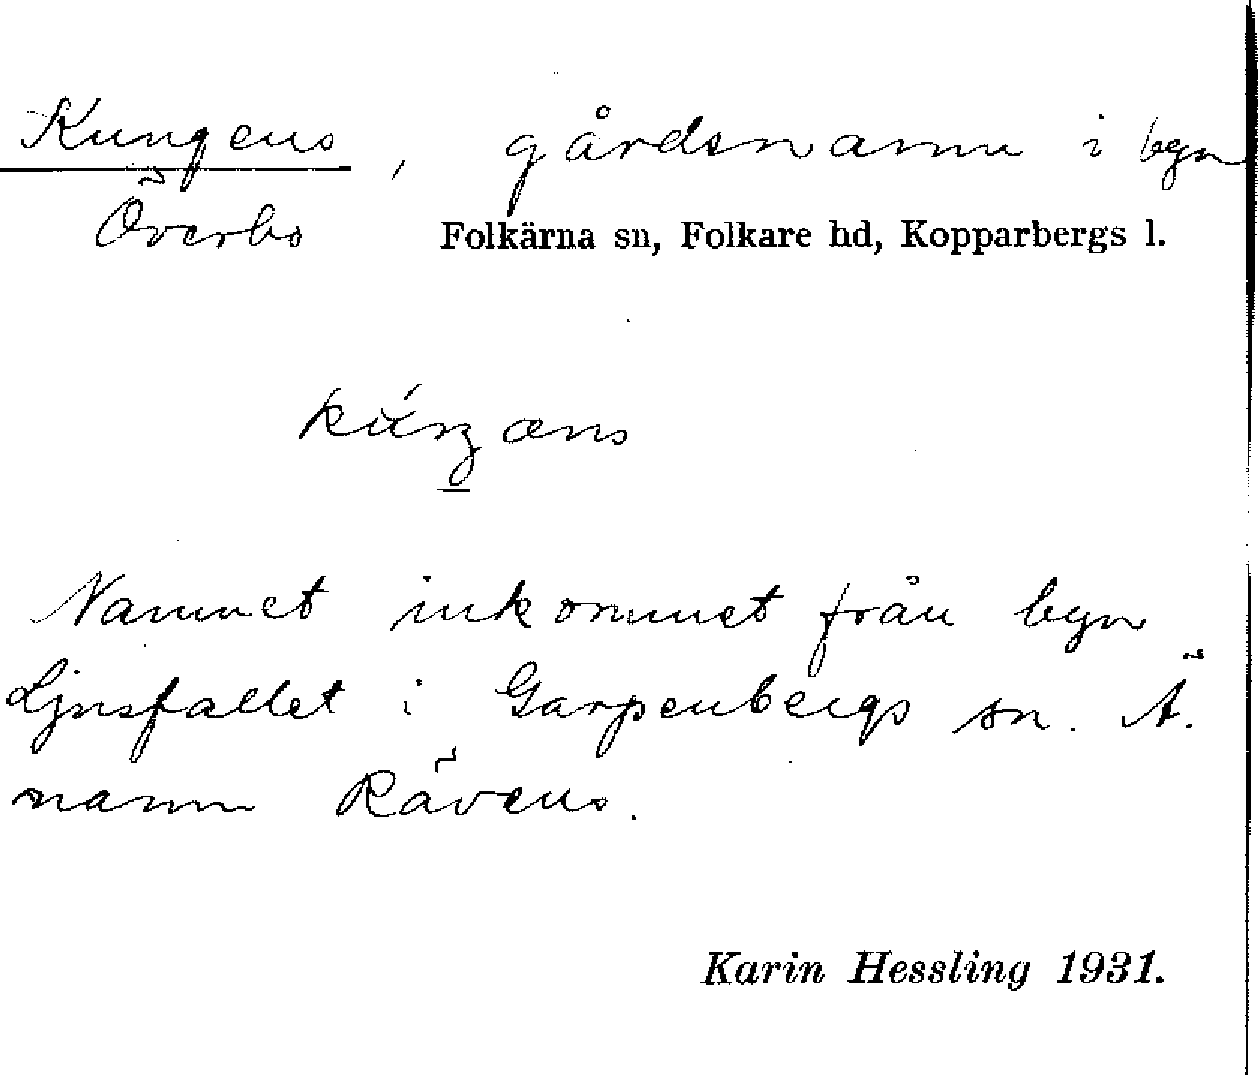 Kungens, gårdsnamn i byn
Överbo Folkärna sn, Folkare hd, Kopparbergs l.
Namnet inkommet från byn
Ljusfallet i Garpenbergs sn. Ä.
namn Rävens.
Karin Hessling 1931.